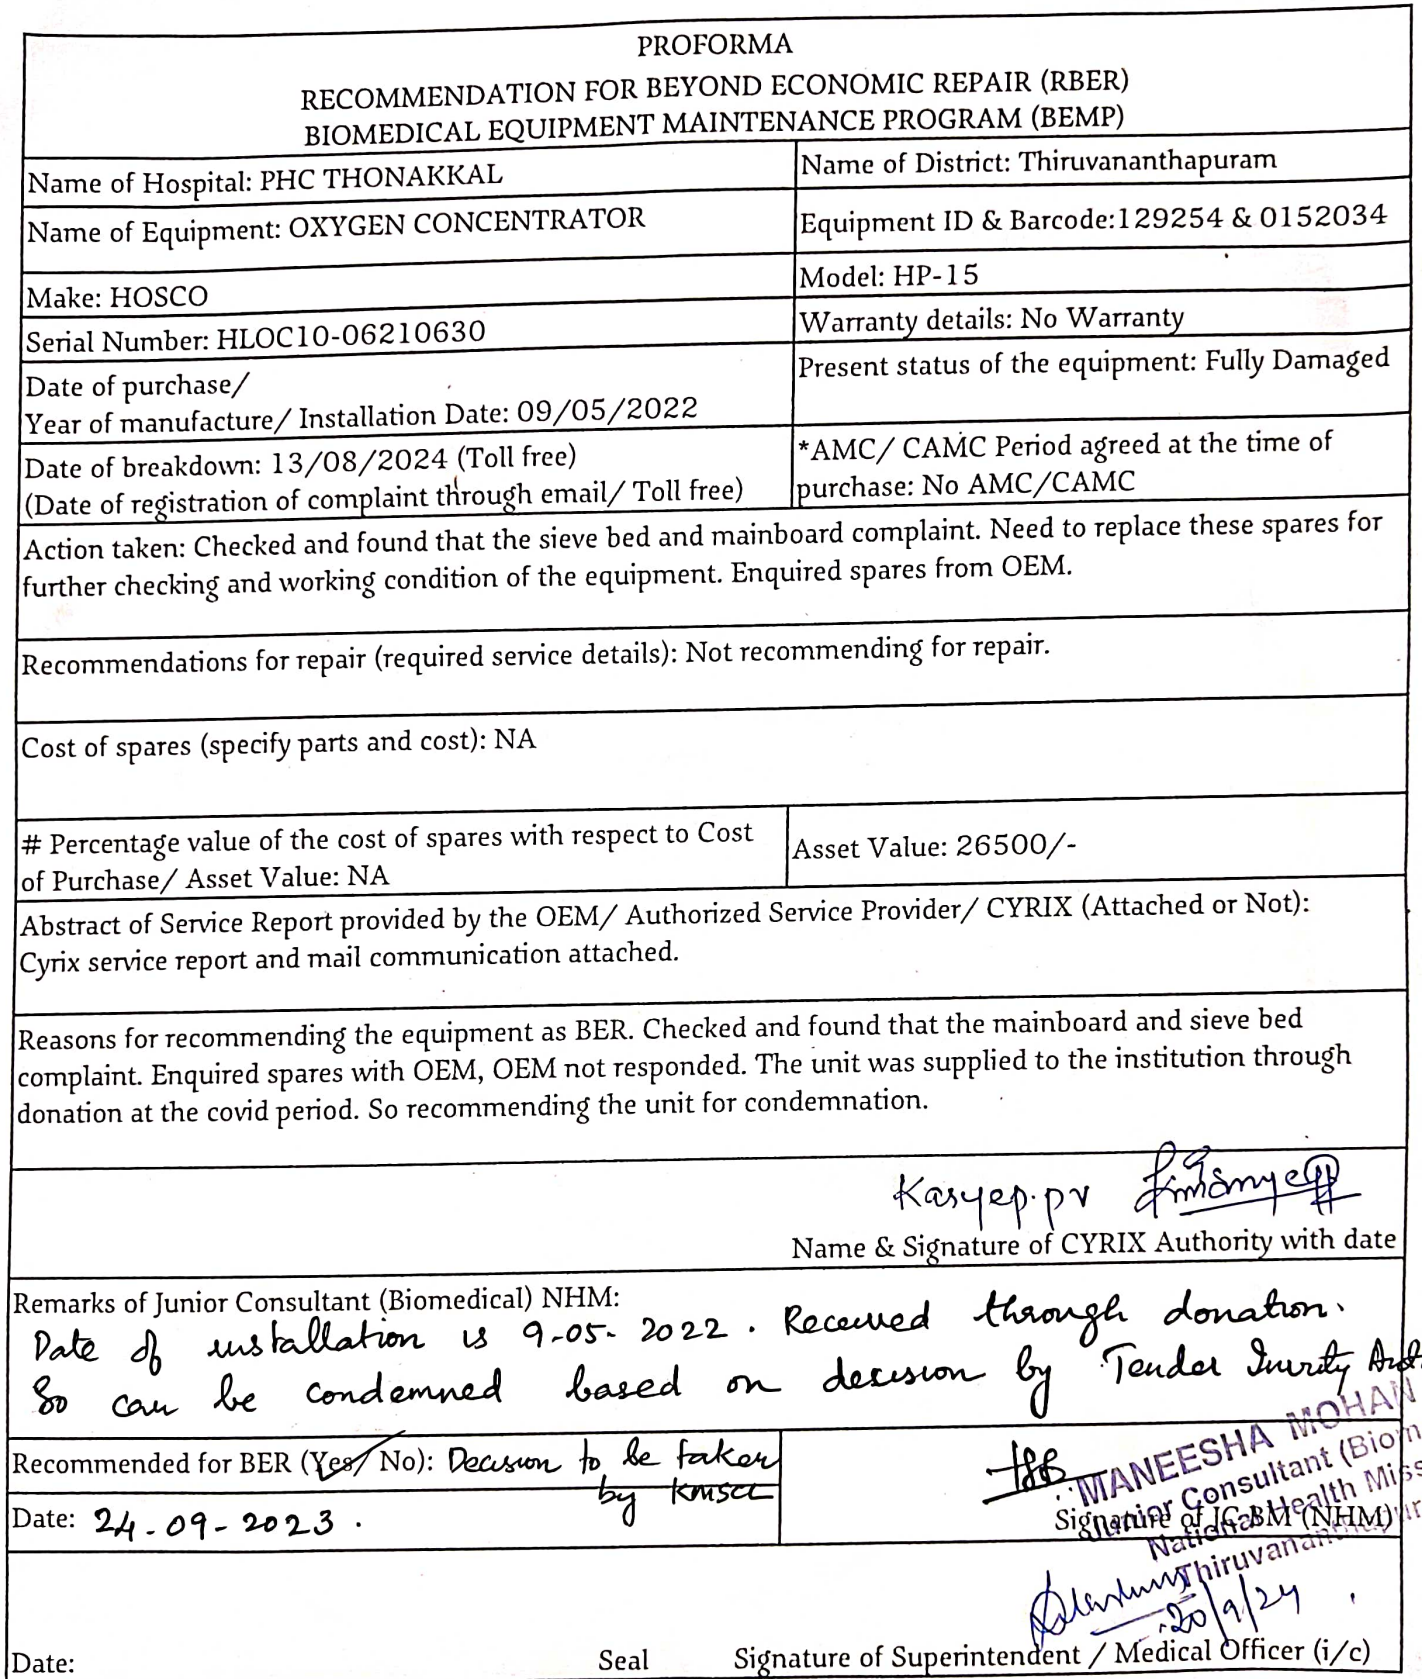 PROFORMA
RECOMMENDATION FOR BEYOND ECONOMIC REPAIR (RBER)
BIOMEDICAL EQUIPMENT MAINTENANCE PROGRAM (BEMP)
Name of Hospital: PHC THONAKKAL
Name of District: Thiruvananthapuram
Name of Equipment: OXYGEN CONCENTRATOR
Equipment ID & Barcode:129254 & 0152034
Make: HOSCO
Model: HP-15
Serial Number: HLOC10-06210630
Warranty details: No Warranty
Date of purchase/
Year of manufacture/ Installation Date: 09/05/2022
Present status of the equipment: Fully Damaged
Date of breakdown: 13/08/2024 (Toll free)
(Date of registration of complaint through email/ Toll free)
*AMC/ CAMC Period agreed at the time of
purchase: No AMC/CAMC
Action taken: Checked and found that the sieve bed and mainboard complaint. Need to replace these spares for
further checking and working condition of the equipment. Enquired spares from OEM.
Recommendations for repair (required service details): Not recommending for repair.
Cost of spares (specify parts and cost): NA
# Percentage value of the cost of spares with respect to Cost
of Purchase/ Asset Value: NA
Asset Value: 26500/-
Abstract of Service Report provided by the OEM/ Authorized Service Provider/ CYRIX (Attached or Not):
Cyrix service report and mail communication attached.
Reasons for recommending the equipment as BER. Checked and found that the mainboard and sieve bed
complaint. Enquired spares with OEM, OEM not responded. The unit was supplied to the institution through
donation at the covid period. So recommending the unit for condemnation.
Kasyep.pv
Name & Signature of CYRIX Authority with date
Remarks of Junior Consultant (Biomedical) NHM:
Date of installation is 9-05-2022. Received through donation.
So can be condemned based on decision by Tender
Recommended for BER (Yes/ No): Decision to be taken
by kmscl
Date: 24-09-2023.
MANEESHA MOHAN
Junior Consultant (Biom
National Health Miss
Thiruvananthapur
Signature of JC-BM (NHM)
20/9/24
Date:
Seal
Signature of Superintendent / Medical Officer (i/c)